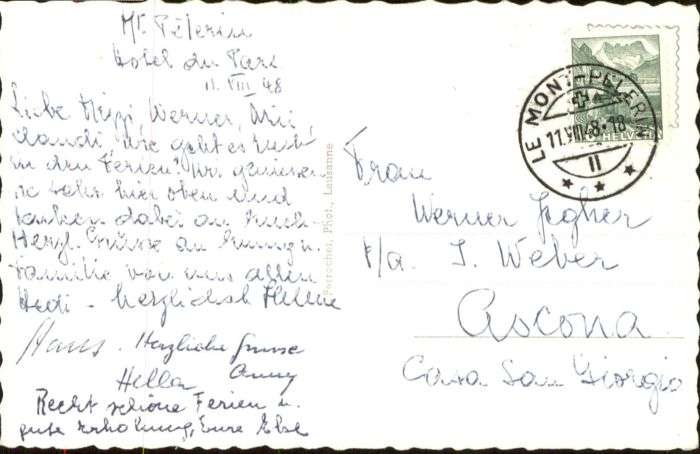 Mt. Pélerin
Hotel du Parc
11. VIII 48
Liebe Werner,
wie geht es Euch
in den Ferien? Wir geniessen
es sehr hier oben und
denken dabei an Euch.
Herzl. Grüsse an
Familie von uns allen
Hedi - herzlichst Helene
Hans. Herzliche Grüsse
Hella Anny
Recht schöne Ferien u.
gute Erholung, Eure Elsa
Perrochet, Phot., Lausanne
LE MONT-PÉLERIN
11.VIII.48-18
II
HELVETIA
Frau
Werner
p/a. J. Weber
Ascona
Casa San Giorgio